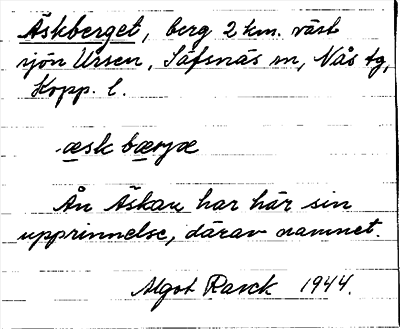 Äskberget, berg 2 km. väst
sjön Ursen, Säfsnäs sn, Nås tg,
Kopp. l.
æsk bærjæ
Ån Äskan har här sin
upprinnelse, därav namnet.
Algot Rarck 1944.